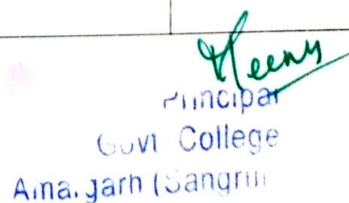 Meenu
Principal
Govt College
Amargarh (Sangrur